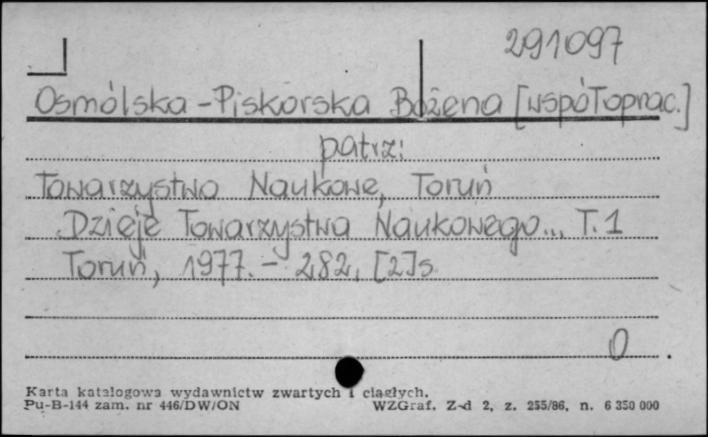 291097
Osmólska-Piskorska Bożena [współoprac.]
patrz:
Towarzystwo Naukowe, Toruń
Dzieje Towarzystwa Naukowego... T.1
Toruń, 1977. - 282, [2]s.
0
Karta katalogowa wydawnictw zwartych i ciągłych.
Pu-B-144 zam. nr 446/DW/ON WZGraf. Z-d 2, z. 255/86, n. 6 350 000